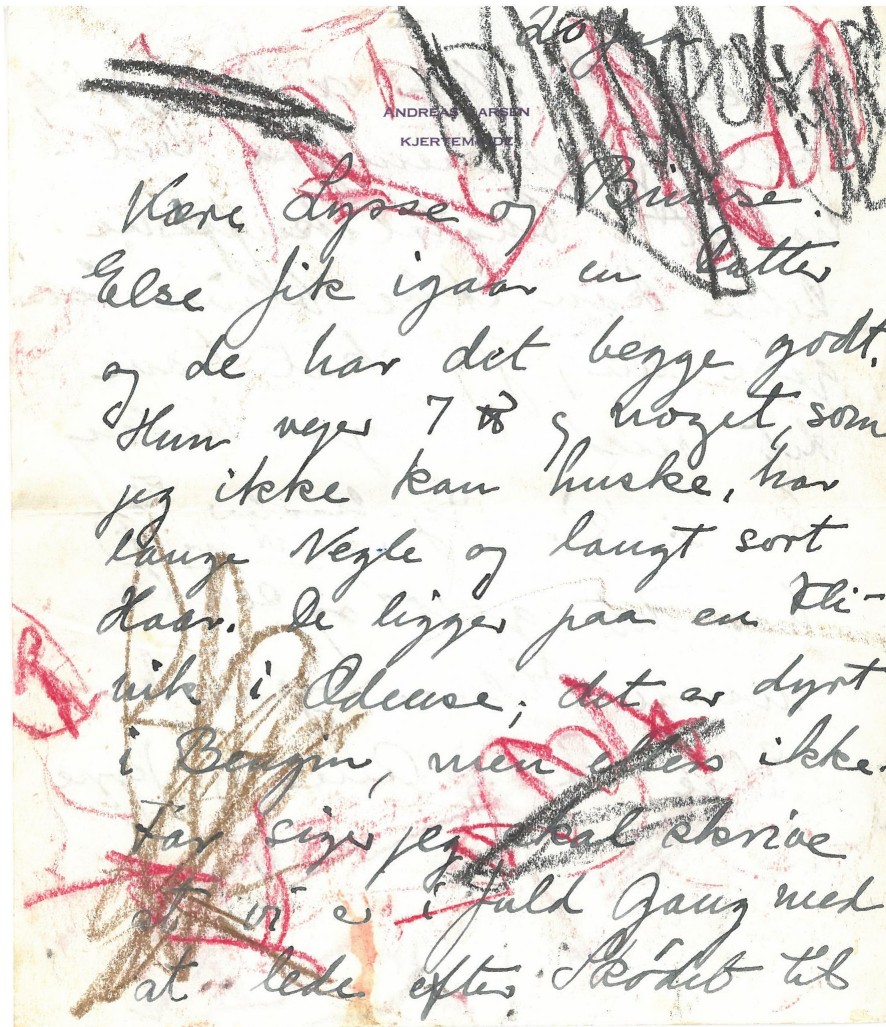 20 Jan
ANDREAS LARSEN
KJERTEMINDE
Kære Lysse og Bimse.
Else fik igaar en Datter
og de har det begge godt.
Hun vejer 7 ℔ og noget, som
jeg ikke kan huske, har
lange Negle og langt sort
Haar. De ligger paa en Kli-
nik i Odense; det er dyrt
i Benzin, men ellers ikke.
Far siger jeg skal skrive
at vi er i fuld Gang med
at lede efter Skødet til